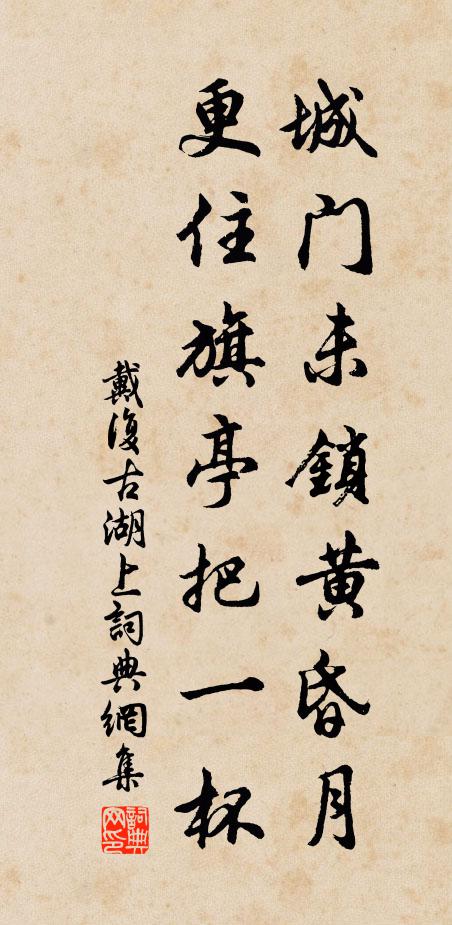 城門未鎖黄昏月
更住旗亭把一杯
戴復古湖上詞典網集
詞典網印